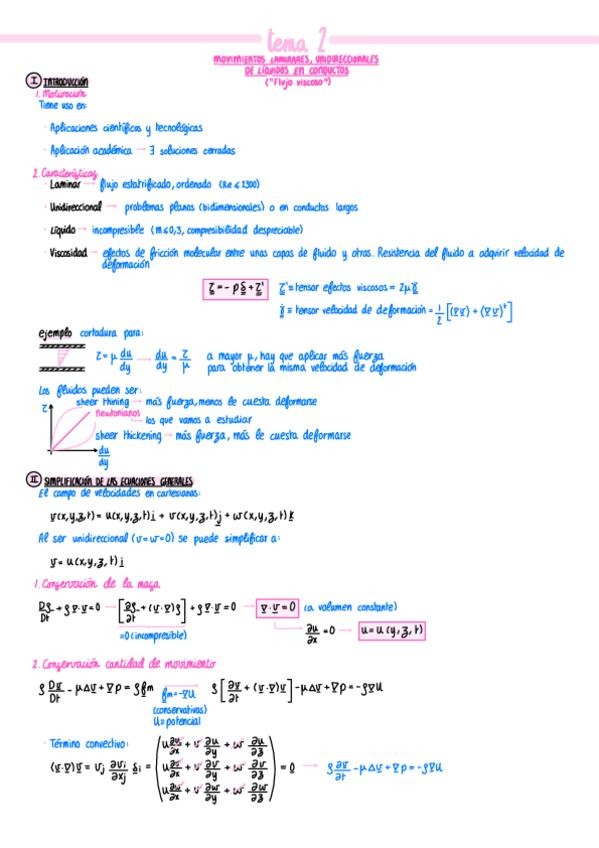 tema 2
MOVIMIENTOS LAMINARES, UNIDIRECCIONALES
DE LÍQUIDOS EN CONDUCTOS
("Flujo viscoso")
I INTRODUCCIÓN
1. Motivación
Tiene uso en:
· Aplicaciones científicas y tecnológicas
· Aplicación académica → ∃ soluciones cerradas
2. Características
· Laminar → flujo estratificado, ordenado (Re ≤ 2300)
· Unidireccional → problemas planos (bidimensionales) o en conductos largos
· Líquido → incompresible (M≤0,3, compresibilidad despreciable)
· Viscosidad → efectos de fricción molecular entre unas capas de fluido y otras. Resistencia del fluido a adquirir velocidad de
deformación
τ = - p δ + τ' τ' ≡ tensor efectos viscosos = 2μγ̇
γ̇ ≡ tensor velocidad de deformación = 1/2 [(∇v) + (∇v)ᵗ]
ejemplo cortadura para:
τ = μ du/dy → du/dy = τ/μ a mayor μ, hay que aplicar más fuerza
para obtener la misma velocidad de deformación
Los fluidos pueden ser:
sheer thining → más fuerza, menos le cuesta deformarse
τ newtonianos
los que vamos a estudiar
sheer thickening → más fuerza, más le cuesta deformarse
du/dy
II SIMPLIFICACIÓN DE LAS ECUACIONES GENERALES
El campo de velocidades en cartesianas:
v(x,y,z,t) = u(x,y,z,t) i + v(x,y,z,t) j + w(x,y,z,t) k
Al ser unidireccional (v=w=0) se puede simplificar a:
v = u(x,y,z,t) i
1. Conservación de la masa
Dρ/Dt + ρ∇·v = 0 → [∂ρ/∂t + (v·∇)ρ] + ρ∇·v = 0 → ∇·v = 0 (a volumen constante)
=0 (incompresible) ∂u/∂x = 0 → u = u(y,z,t)
2. Conservación cantidad de movimiento
ρ Dv/Dt - μΔv + ∇p = ρfm → ρ[∂v/∂t + (v·∇)v] - μΔv + ∇p = -ρ∇U
fm = -∇U
(conservativas)
U≡potencial
· Término convectivo:
(v·∇)v = vj ∂vi/∂xj δi = (u ∂u/∂x + v ∂u/∂y + w ∂u/∂z
u ∂v/∂x + v ∂v/∂y + w ∂v/∂z
u ∂w/∂x + v ∂w/∂y + w ∂w/∂z) = 0 → ρ ∂v/∂t - μΔv + ∇p = -ρ∇U